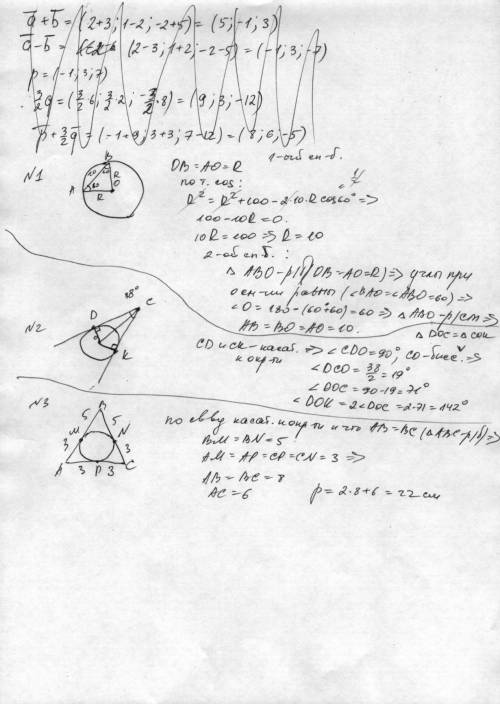 a̅+b̅=(2+3; 1-2; -2+5)=(5;-1;3)
a̅-b̅= (2-3; 1+2; -2-5)=(-1;3;-7)
p=(-1;3;7)
3/2 q=(3/2·6; 3/2·2; -3/2·8)=(9;3;-12)
p̅+3/2 q̅=(-1+9; 3+3; 7-12)=(8;6;-5)
1-ый сп-б.
N1
B
10
60
R
A
60
O
R
OB=AO=R
по т. cos:
1/2
R²=R²+100-2·10·R cos60° =>
100-10R=0.
10R=100 => R=10
2-ой сп.б.:
△ ABO-р/б (OB=AO=R) => углы при
осн-ии равны (∠BAO=∠ABO=60) =>
∠O=180-(60+60)=60 => △ABO-р/ст =>
AB=BO=AO=10.
△DOC=△COK
N2
38°
C
D
O
K
CD и CK-касат. => ∠CDO=90°, CO-бисс. =>
к окр-ти
∠DCO=38/2=19°
∠DOC=90-19=71°
∠DOK=2∠DOC=2·71=142°
N3
B
5
5
M
N
3
3
A
3
P
3
C
по св-ву касат. к окр-ти и что AB=BC (△ABC-р/б) =>
BM=BN=5
AM=AP=CP=CN=3 =>
AB=BC=8
AC=6
p=2·8+6=22 см